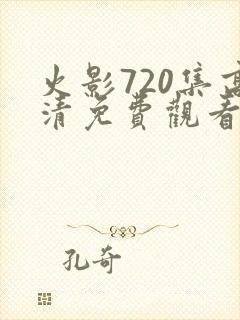 火影720集高
清免費觀看
孔奇